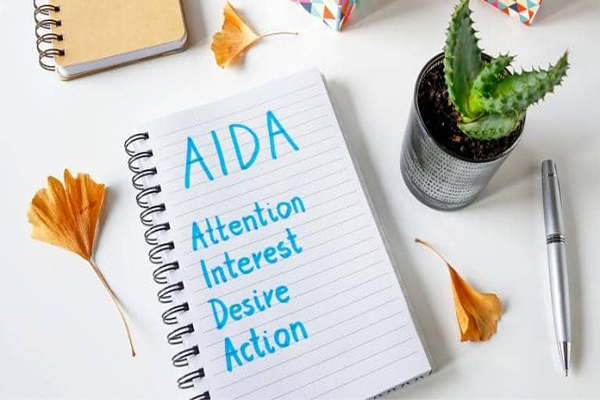 AIDA
Attention
Interest
Desire
Action